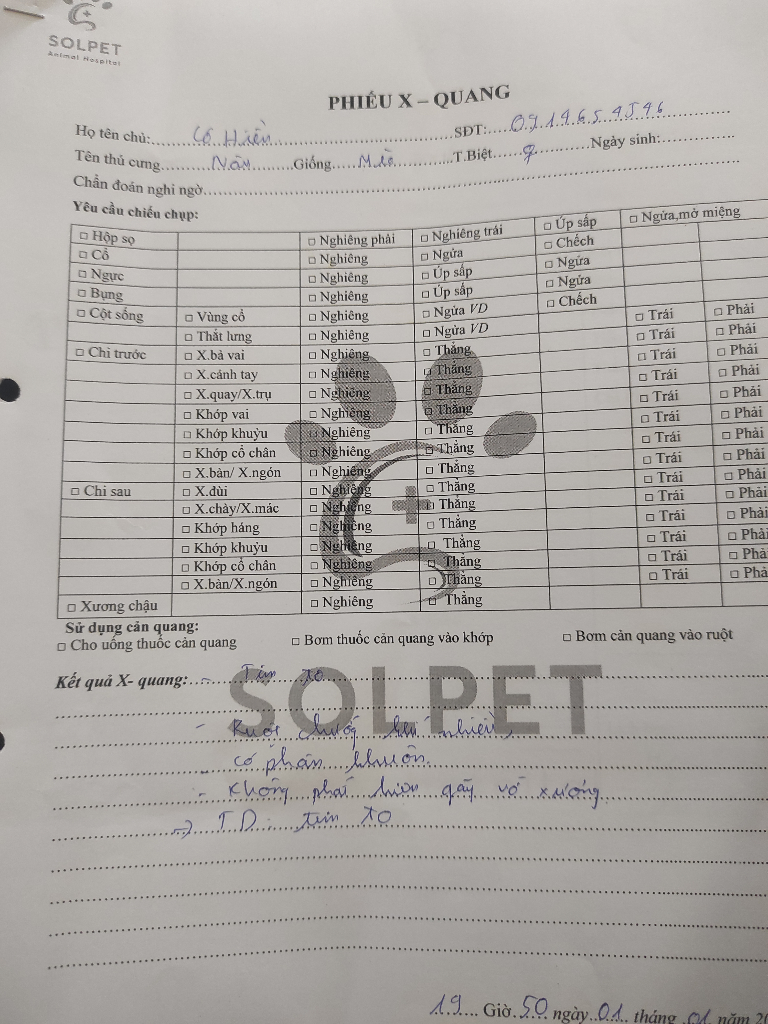 SOLPET
Animal Hospital
PHIẾU X – QUANG
Họ tên chủ: Cô Hiền SĐT: 0919654546
Tên thú cưng Nâu Giống Mèo T.Biệt ♀ Ngày sinh:
Chẩn đoán nghi ngờ
Yêu cầu chiếu chụp:
□ Hộp sọ □ Nghiêng phải □ Nghiêng trái □ Úp sấp □ Ngửa,mở miệng
□ Cổ □ Nghiêng □ Ngửa □ Chếch
□ Ngực □ Nghiêng □ Úp sấp □ Ngửa
□ Bụng □ Nghiêng □ Úp sấp □ Ngửa
□ Cột sống □ Vùng cổ □ Nghiêng □ Ngửa VD □ Chếch □ Trái □ Phải
□ Thắt lưng □ Nghiêng □ Ngửa VD □ Trái □ Phải
□ Chi trước □ X.bả vai □ Nghiêng □ Thẳng □ Trái □ Phải
□ X.cánh tay □ Nghiêng □ Thẳng □ Trái □ Phải
□ X.quay/X.trụ □ Nghiêng □ Thẳng □ Trái □ Phải
□ Khớp vai □ Nghiêng □ Thẳng □ Trái □ Phải
□ Khớp khuỷu □ Nghiêng □ Thẳng □ Trái □ Phải
□ Khớp cổ chân □ Nghiêng □ Thẳng □ Trái □ Phải
□ X.bàn/ X.ngón □ Nghiêng □ Thẳng □ Trái □ Phải
□ Chi sau □ X.đùi □ Nghiêng □ Thẳng □ Trái □ Phải
□ X.chày/X.mác □ Nghiêng □ Thẳng □ Trái □ Phải
□ Khớp háng □ Nghiêng □ Thẳng □ Trái □ Phải
□ Khớp khuỷu □ Nghiêng □ Thẳng □ Trái □ Phả
□ Khớp cổ chân □ Nghiêng □ Thẳng □ Trái □ Phả
□ X.bàn/X.ngón □ Nghiêng □ Thẳng
□ Xương chậu □ Nghiêng □ Thẳng
Sử dụng cản quang:
□ Cho uống thuốc cản quang □ Bơm thuốc cản quang vào khớp □ Bơm cản quang vào ruột
Kết quả X- quang: - Tim to
SOLPET
- Ruột chướng hơi nhiều,
có phân khuôn.
- Không phát hiện gãy vỡ xương
=> TD: tim to
19 Giờ 50 ngày 01 tháng 01 năm 20